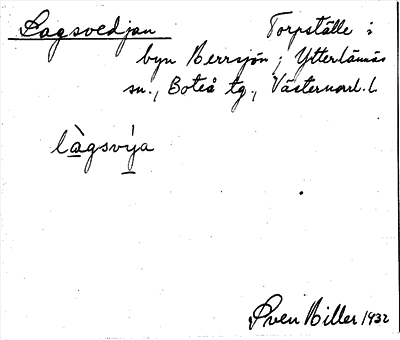 Lagsvedjan Torpställe i
byn Berrsjön; Ytterlännäs
sn., Boteå tg., Västernorrl. L
làgsvi̱ja
Sven Hiller 1932